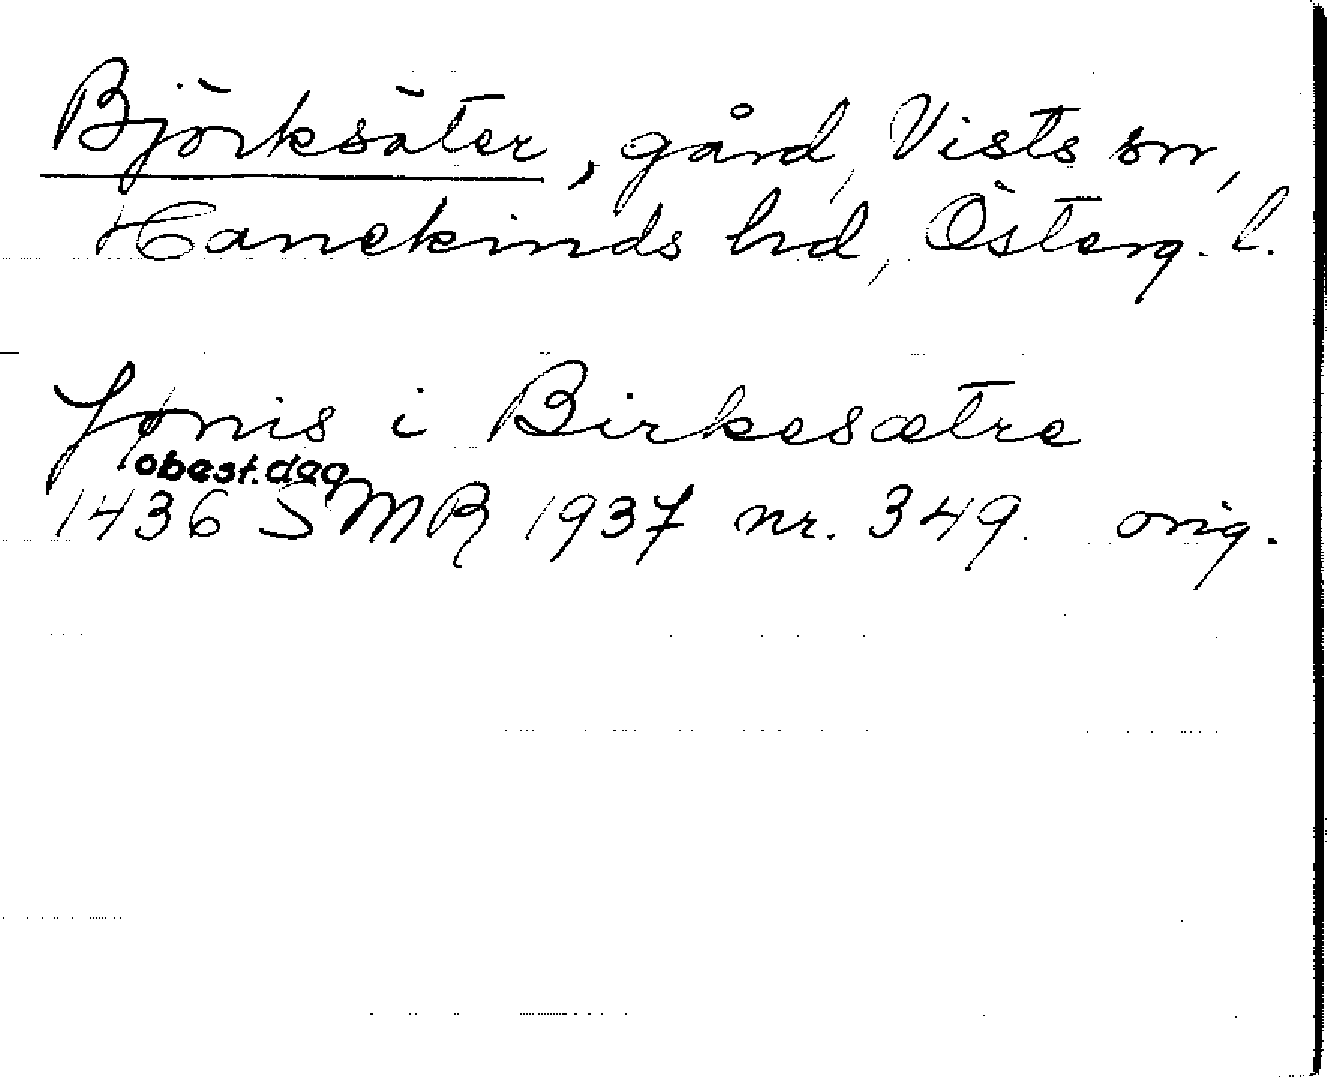 Björksäter, gård, Vists sn,
Hanekinds hd, Österg. l.
Jønis i Birkesætre
obest. dag
1436 SMR 1937 nr. 349. orig.